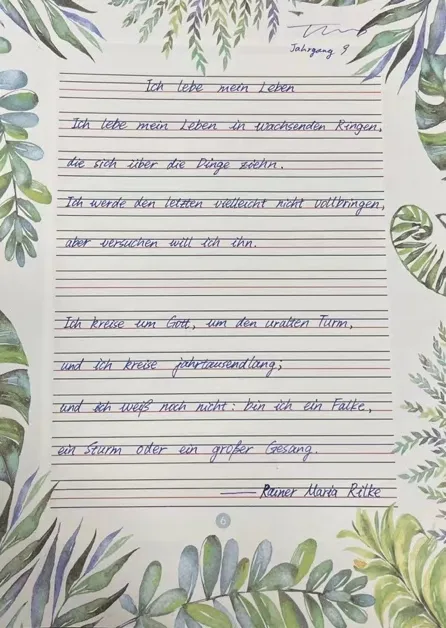 Jahrgang 9
Ich lebe mein Leben
Ich lebe mein Leben in wachsenden Ringen,
die sich über die Dinge ziehn.
Ich werde den letzten vielleicht nicht vollbringen,
aber versuchen will ich ihn.
Ich kreise um Gott, um den uralten Turm,
und ich kreise jahrtausendlang;
und ich weiß noch nicht: bin ich ein Falke,
ein Sturm oder ein großer Gesang.
—— Rainer Maria Rilke
6